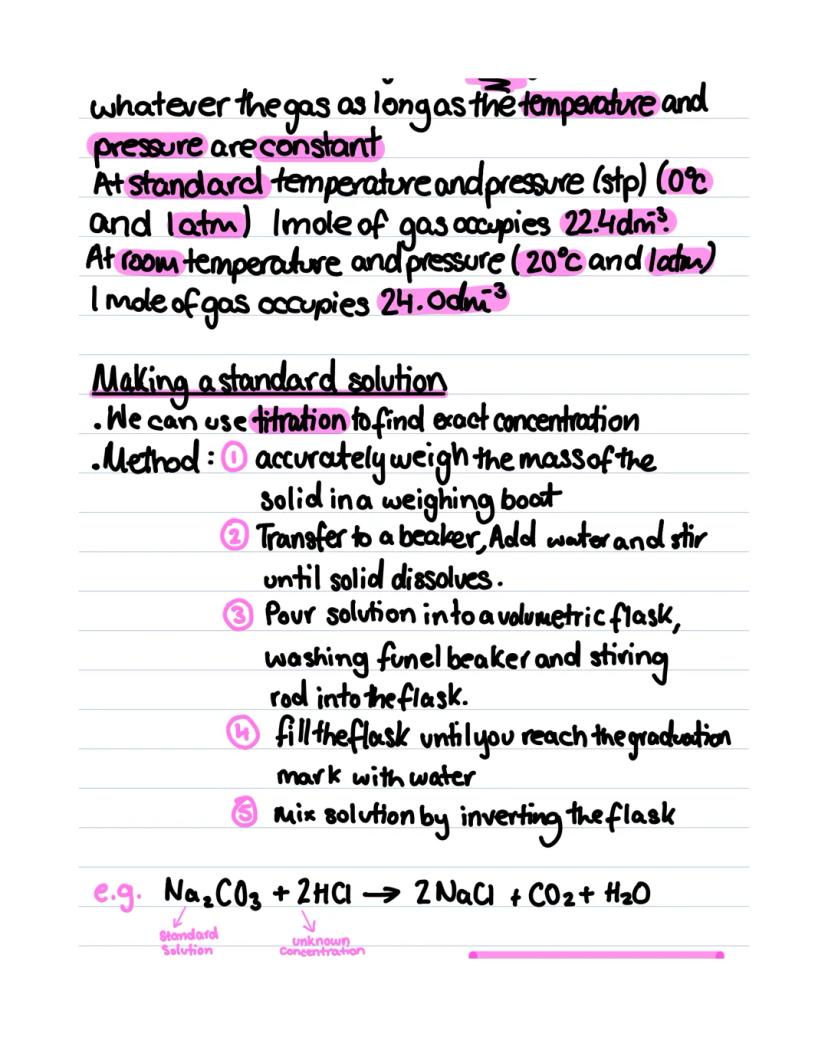 whatever the gas as long as the temperature and
pressure are constant
At standard temperature and pressure (stp) (0°c
and 1atm) 1mole of gas occupies 22.4dm⁻³.
At room temperature and pressure (20°c and 1atm)
1 mole of gas occupies 24.0dm⁻³
Making a standard solution
. We can use titration to find exact concentration
. Method : ① accurately weigh the mass of the
solid in a weighing boat
② Transfer to a beaker, Add water and stir
until solid dissolves.
③ Pour solution into a volumetric flask,
washing funel beaker and stiring
rod into the flask.
④ fill the flask until you reach the graduation
mark with water
⑤ mix solution by inverting the flask
e.g. Na₂CO₃ + 2HCl → 2NaCl + CO₂ + H₂O
Standard
Solution
unknown
Concentration